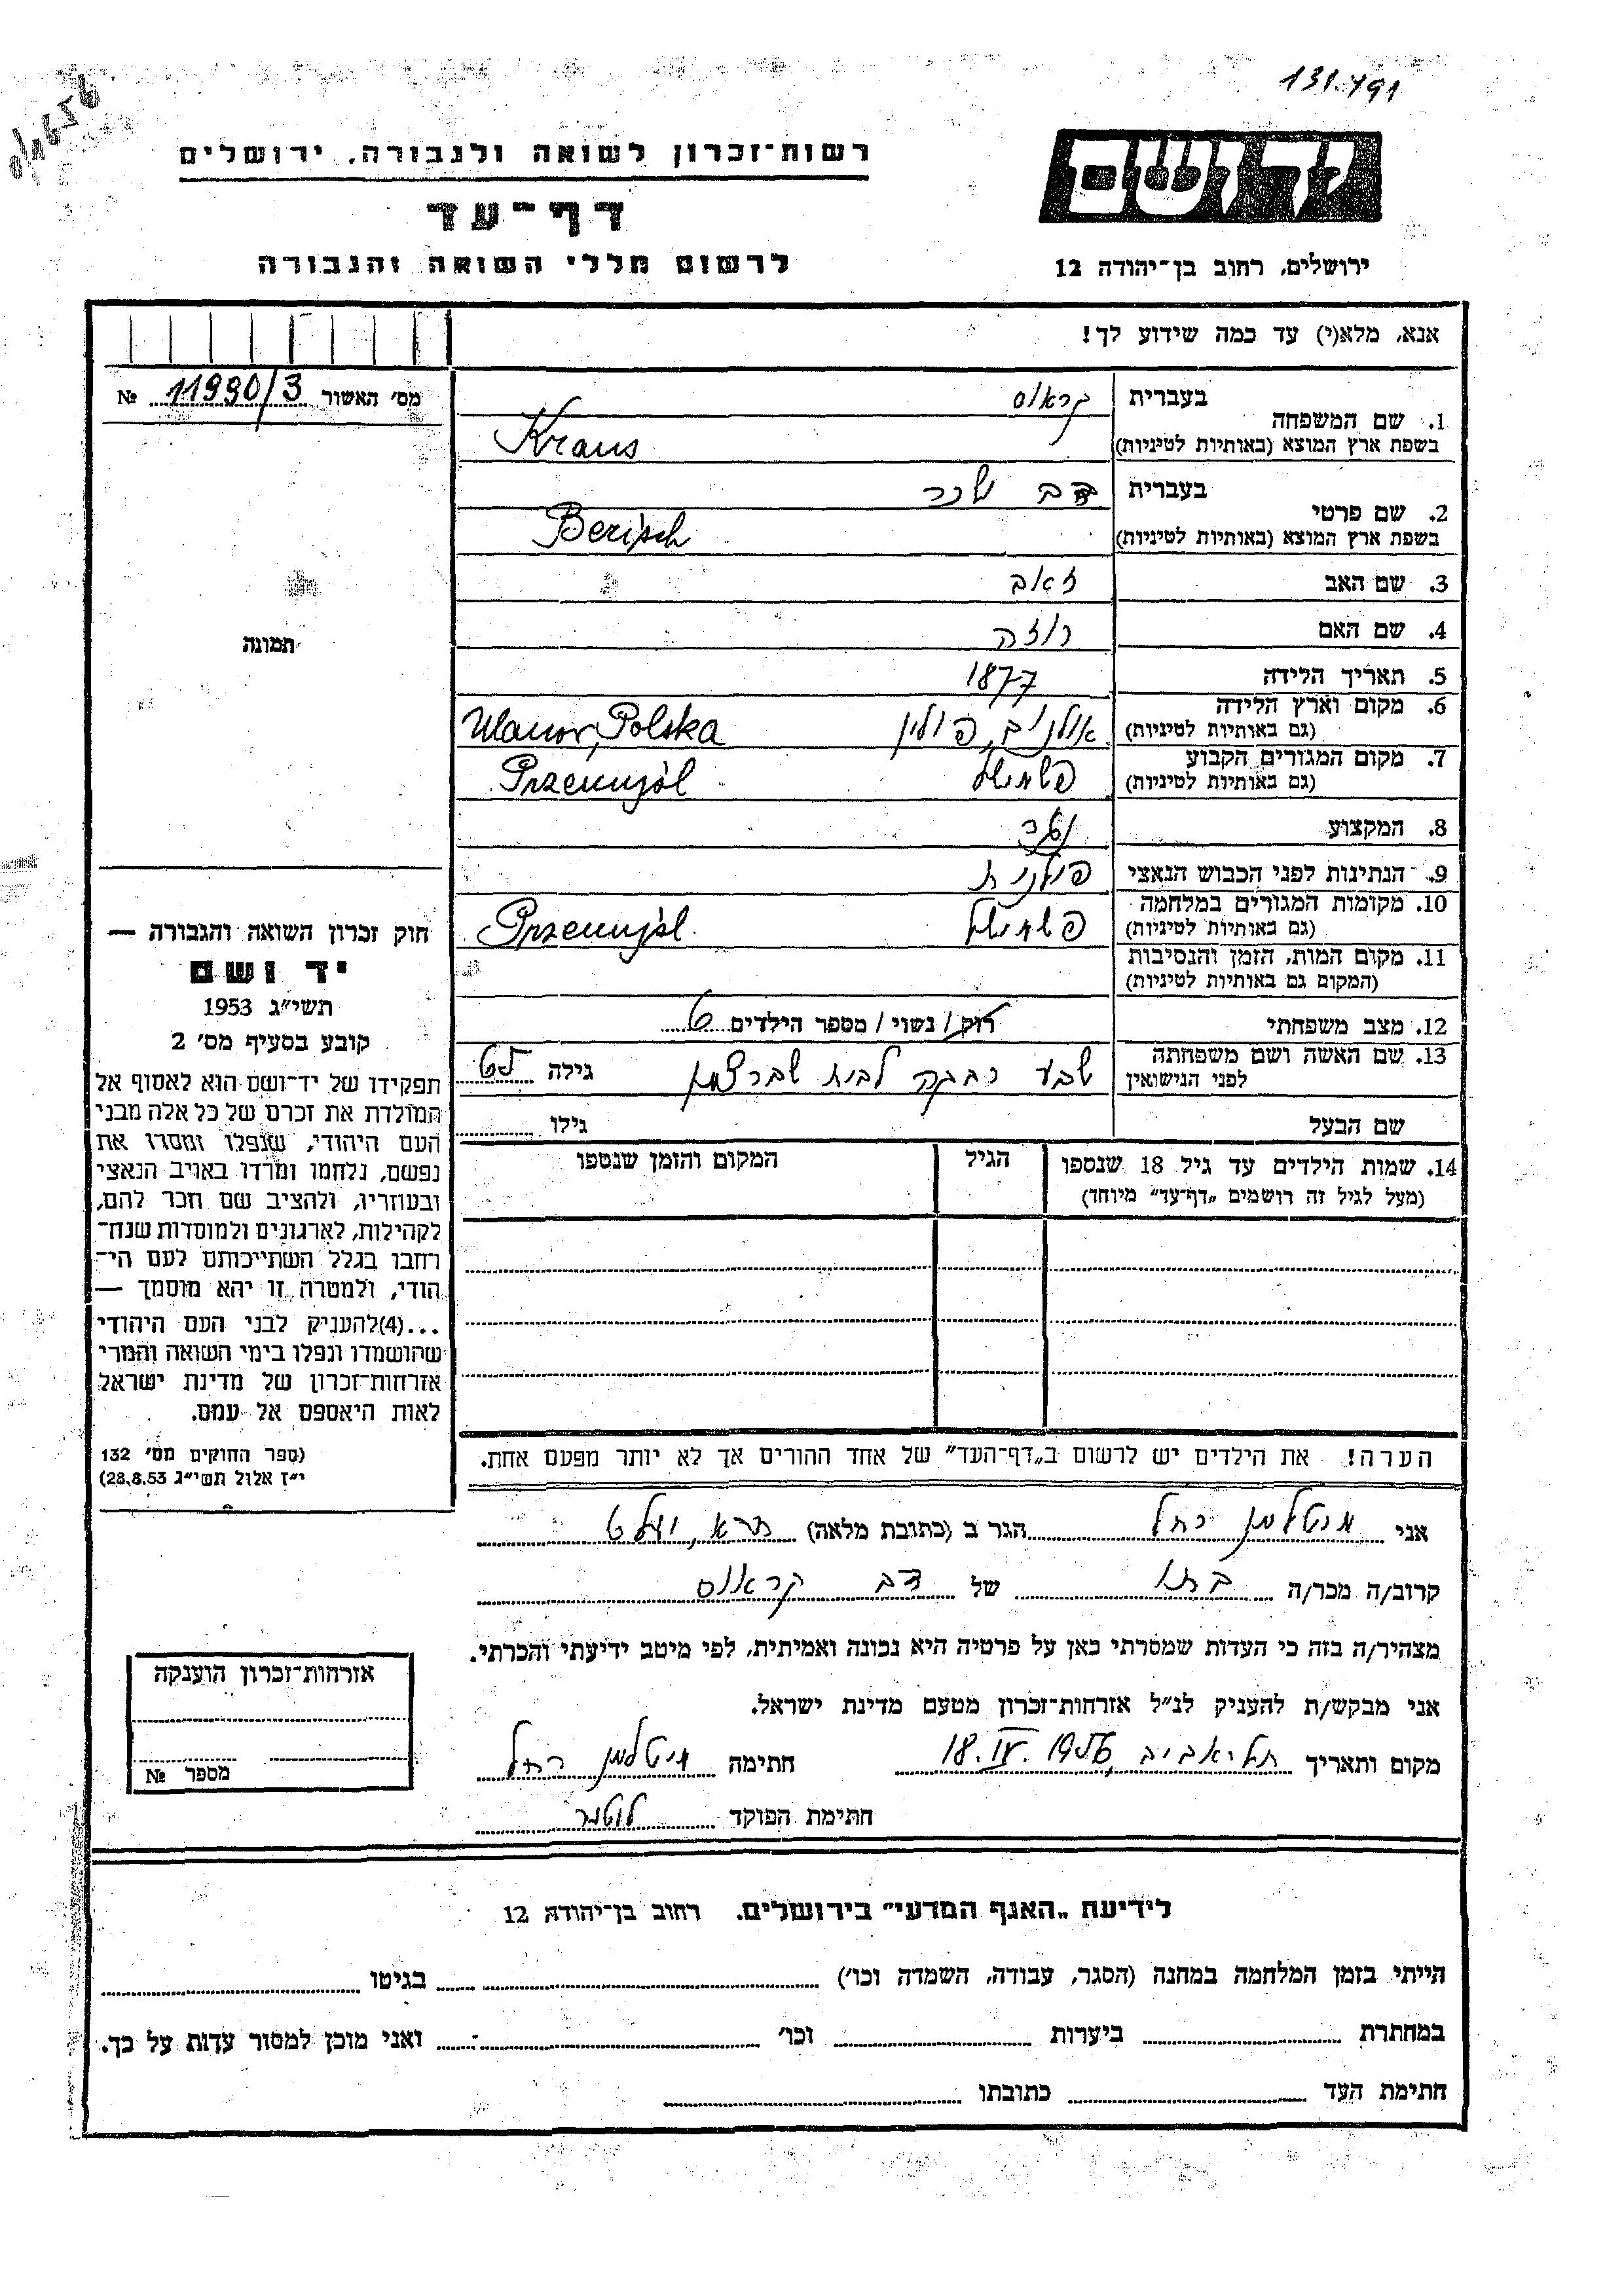 131.191
רשות־זכרון לשואה ולגבורה, ירושלים
יד ושם
דף־עד
לרשום חללי השואה והגבורה
ירושלים, רחוב בן־יהודה 12
אנא, מלא(י) עד כמה שידוע לך!
מס׳ האשור № 11990/3
בעברית קראוס
1. שם המשפחה
בשפת ארץ המוצא (באותיות לטיניות) Kraus
בעברית דב
2. שם פרטי
בשפת ארץ המוצא (באותיות לטיניות) Berisch
3. שם האב זאב
4. שם האם רוזה
תמונה
5. תאריך הלידה 1877
6. מקום וארץ הלידה
(גם באותיות לטיניות) פולין Ulanov, Polska
7. מקום המגורים הקבוע
(גם באותיות לטיניות) פשמישל Przemyśl
8. המקצוע
9. הנתינות לפני הכבוש הנאצי פולנית
10. מקומות המגורים במלחמה
(גם באותיות לטיניות) פשמישל Przemyśl
11. מקום המות, הזמן והנסיבות
(המקום גם באותיות לטיניות)
12. מצב משפחתי רוק / נשוי / מספר הילדים 6
13. שם האשה ושם משפחתה
לפני הנישואין שבע רבקה לבית גילה
שם הבעל גילו
14. שמות הילדים עד גיל 18 שנספו הגיל המקום והזמן שנספו
(מעל לגיל זה רושמים „דף־עד” מיוחד)
הערה! את הילדים יש לרשום ב„דף־העד” של אחד ההורים אך לא יותר מפעם אחת.
חוק זכרון השואה והגבורה —
יד ושם
תשי״ג 1953
קובע בסעיף מס׳ 2
תפקידו של יד־ושם הוא לאסוף אל
המולדת את זכרם של כל אלה מבני
העם היהודי, שנפלו ומסרו את
נפשם, נלחמו ומרדו באויב הנאצי
ובעוזריו, ולהציב שם וזכר להם,
לקהילות, לארגונים ולמוסדות שנח־
רחבו בגלל השתייכותם לעם הי־
הודי, ולמטרה זו יהא מוסמך —
...(4)להעניק לבני העם היהודי
שהושמדו ונפלו בימי השואה והמרי
אזרחות־זכרון של מדינת ישראל
לאות היאספם אל עמם.
(ספר החוקים מס׳ 132
י״ז אלול תשי״ג 28.8.53)
אני רחל הגר ב (כתובת מלאה)
קרוב/ה מכר/ה בתו של דב קראוס
מצהיר/ה בזה כי העדות שמסרתי כאן על פרטיה היא נכונה ואמיתית, לפי מיטב ידיעתי והכרתי.
אני מבקש/ת להעניק לנ״ל אזרחות־זכרון מטעם מדינת ישראל.
מקום ותאריך תל־אביב, 18.IV.1956 חתימה רחל
חתימת הפוקד
אזרחות־זכרון הוענקה
מספר №
לידיעת „האגף המדעי” בירושלים. רחוב בן־יהודה 12
הייתי בזמן המלחמה במחנה (הסגר, עבודה, השמדה וכו׳) בגיטו
במחתרת ביערות וכו׳ ואני מוכן למסור עדות על כך.
חתימת העד כתובתו